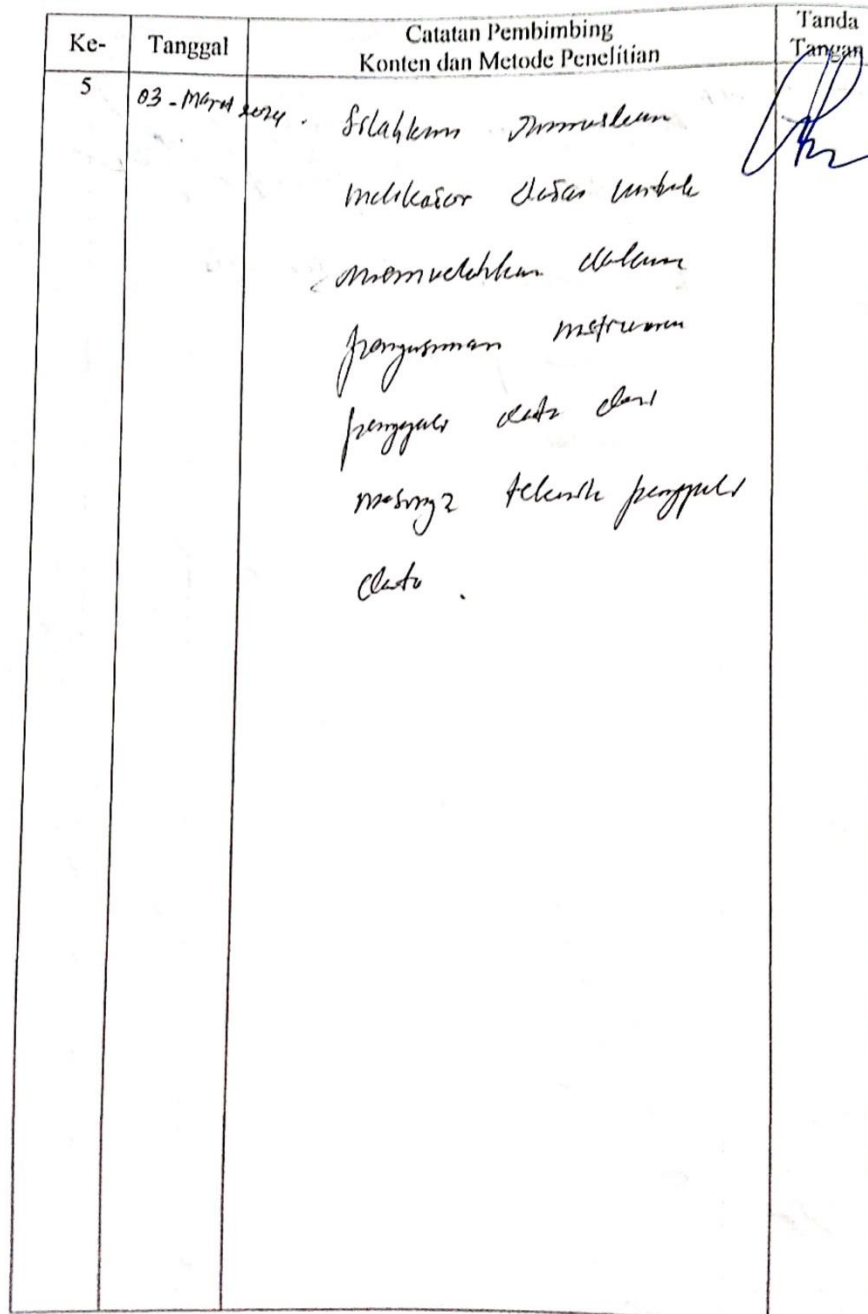 Ke- Tanggal Catatan Pembimbing Konten dan Metode Penelitian Tanda Tangan
5 03 - Maret 2024 . Silahkan rumuskan
indikator dasar untuk
memudahkan dalam
penyusunan instrumen
penggali data dari
masing2 teknik penggali
data .